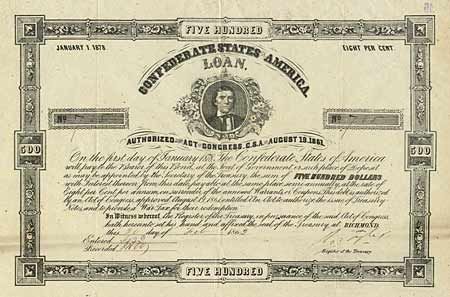 FIVE HUNDRED
JANUARY 1. 1878.
EIGHT PER CENT.
CONFEDERATE STATES OF AMERICA.
LOAN.
No
No
AUTHORIZED BY ACT OF CONGRESS, C.S.A. OF AUGUST 19. 1861.
500
500
On the first day of January 1878, The Confederate States of America
will pay to the Bearer of this Bond, at the Seat of Government or at such place of deposit
as may be appointed by the Secretary of the Treasury, the sum of FIVE HUNDRED DOLLARS
with Interest thereon from this date, payable at the same place, semi-annually, at the rate of
Eight per Cent. per annum, on surrender of the annexed Warrants, or Coupons. This debt is authorized
by an Act of Congress, approved August 19. 1861, entitled An Act to authorize the issue of Treasury
Notes, and to provide a War Tax for their redemption.
In Witness whereof, the Register of the Treasury, in pursuance of the said Act of Congress,
hath hereunto set his hand and affixed the seal of the Treasury, at RICHMOND,
this day of 186
Entered
Recorded
Register of the Treasury
FIVE HUNDRED